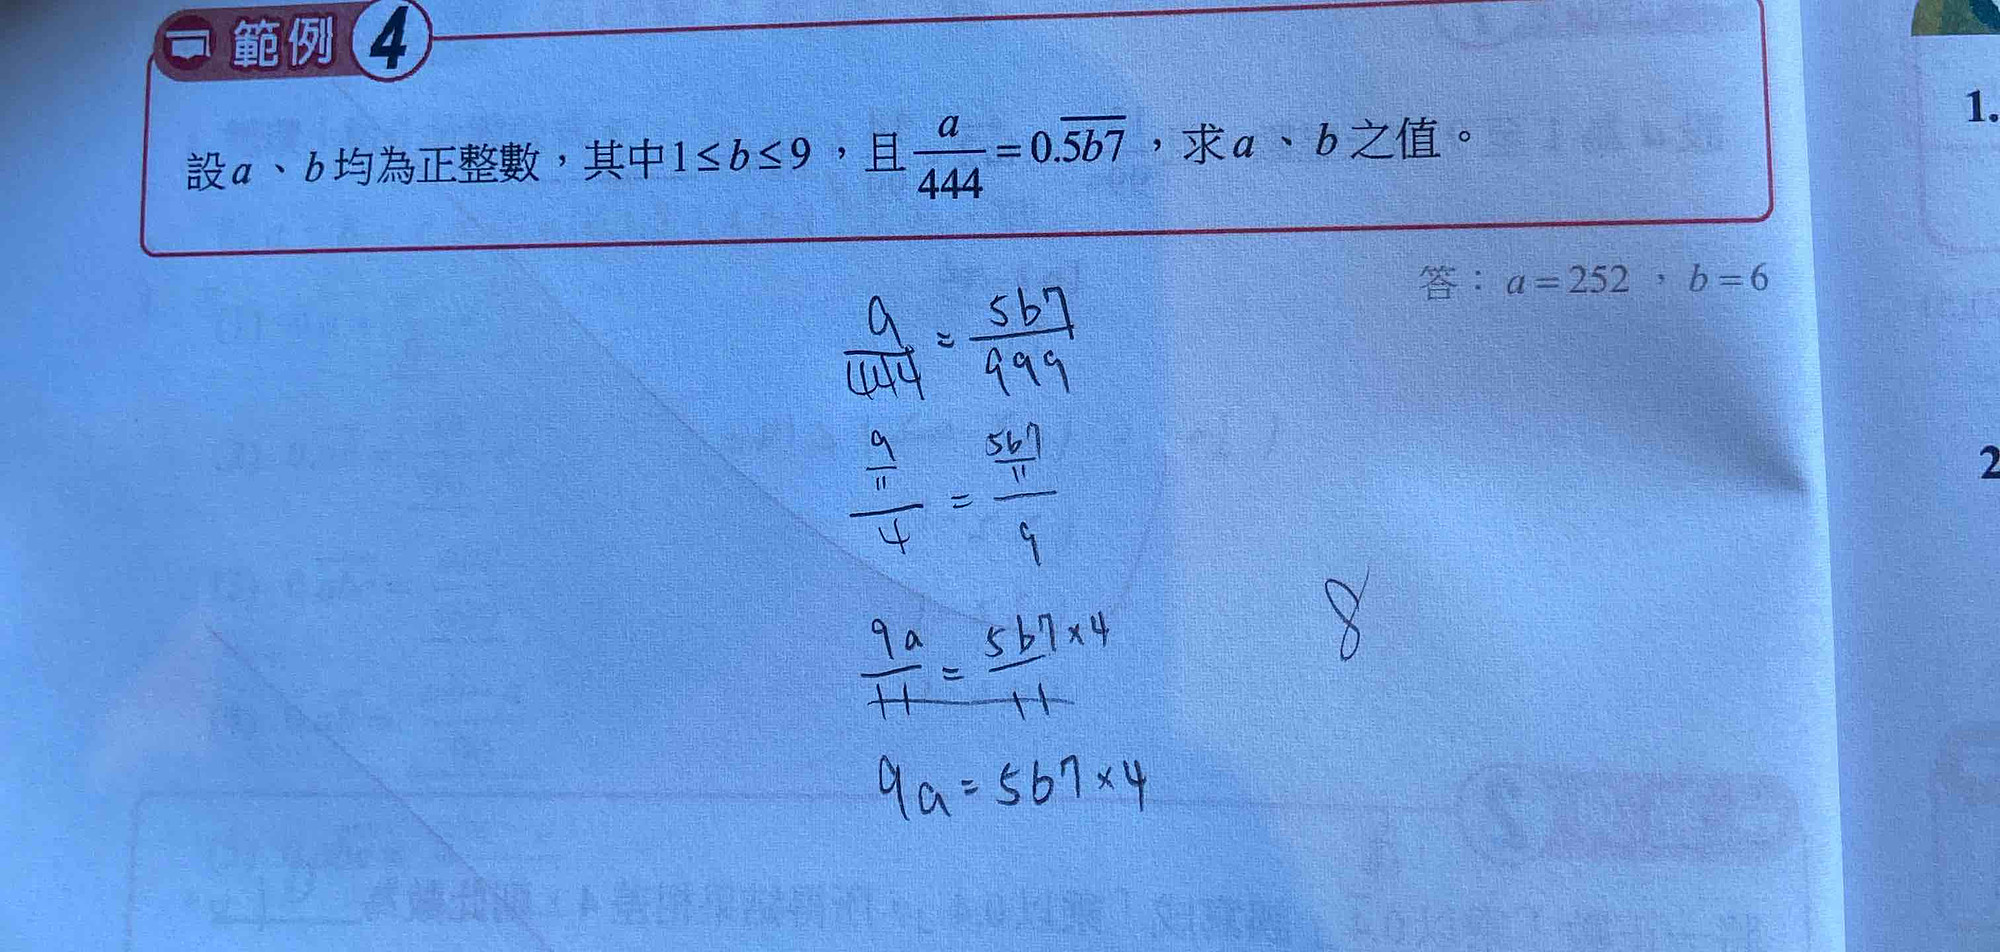 範例 4
設a、b均為正整數，其中1≤b≤9，且a/444=0.\overline{5b7}，求a、b之值。
答：a=252，b=6
a/444 = 5b7/999
(a/11)/4 = (5b7/11)/9
9a/11 = 5b7×4/11
8
9a=5b7×4
1.
2